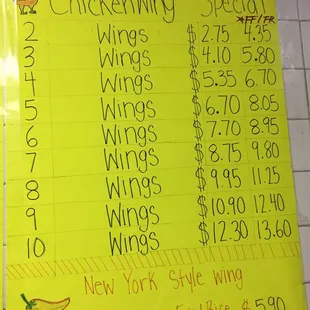 ChickenWing Special
*FF/FR
2 Wings $2.75 4.35
3 Wings $4.10 5.80
4 Wings $5.35 6.70
5 Wings $6.70 8.05
6 Wings $7.70 8.95
7 Wings $8.75 9.80
8 Wings $9.95 11.25
9 Wings $10.90 12.40
10 Wings $12.30 13.60
New York Style Wing
Rice $5.90